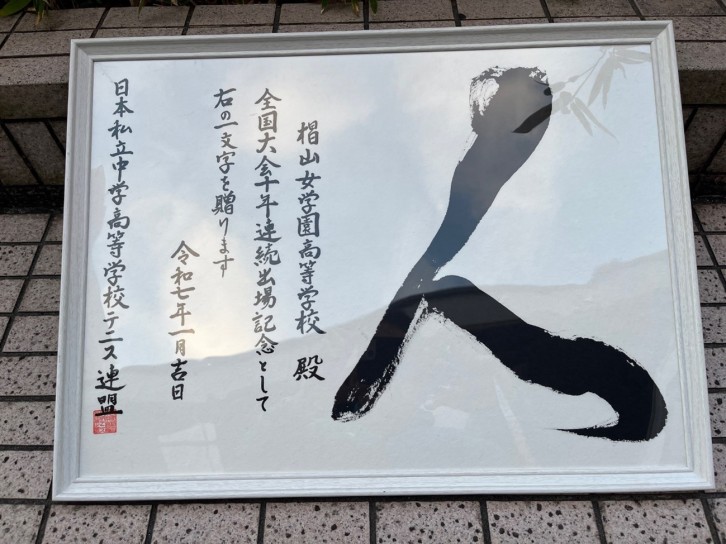 人
椙山女学園高等学校 殿
全国大会十年連続出場記念として
右の一文字を贈ります
令和七年一月吉日
日本私立中学高等学校テニス連盟